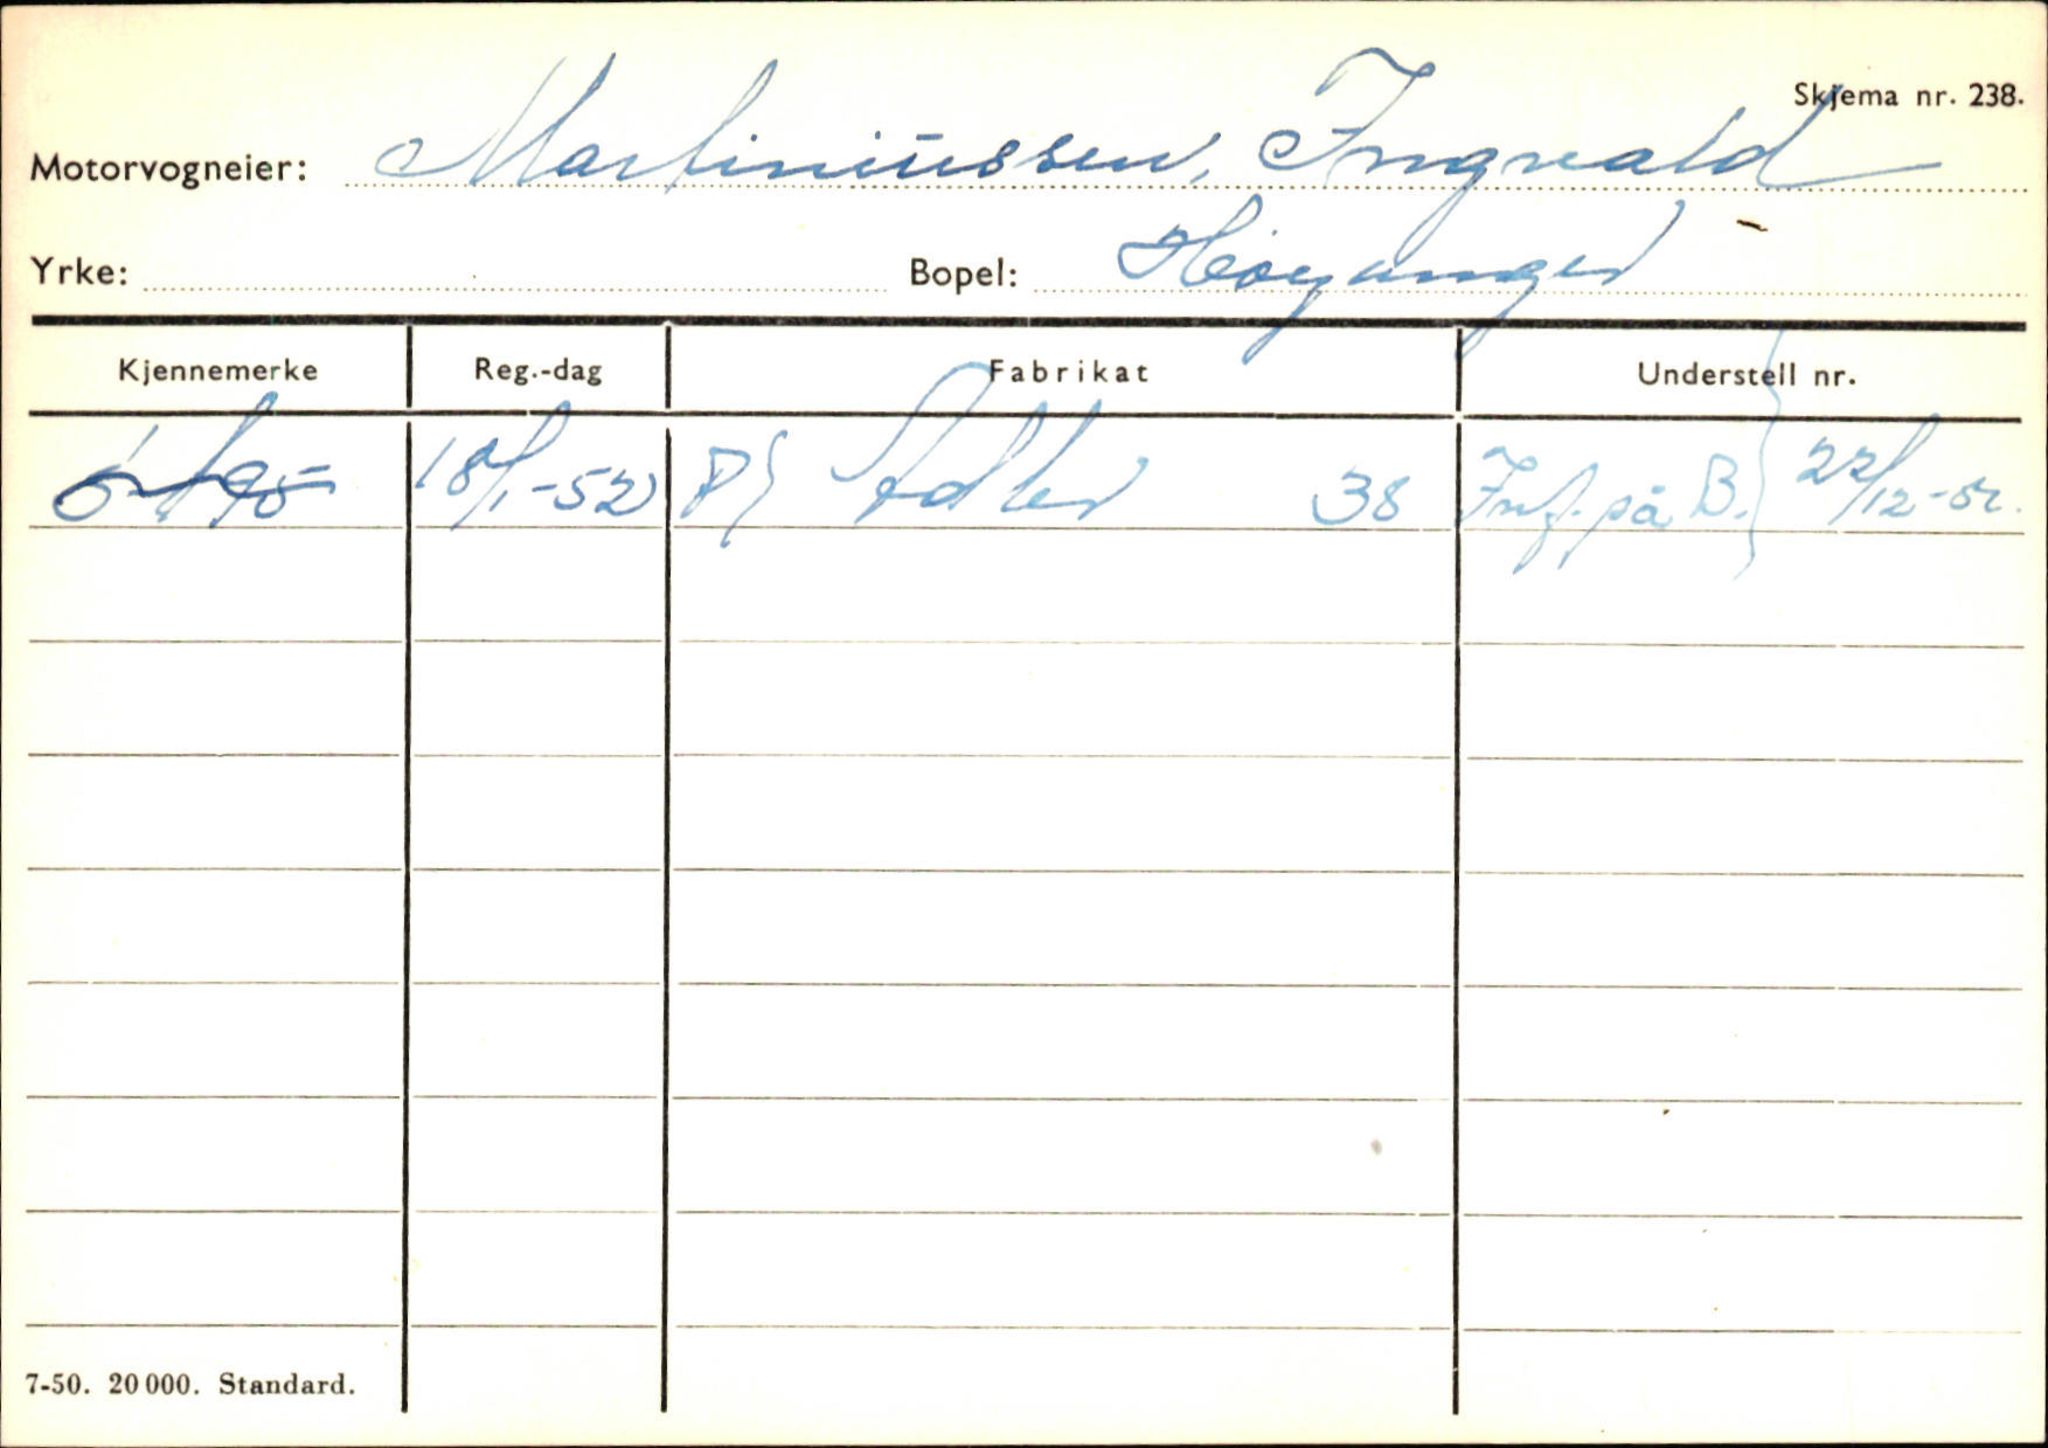 Skjema nr. 238.
Motorvogneier: Martiniussen, Ingvald
Yrke: Bopel: Høyanger
Kjennemerke Reg.-dag Fabrikat Understell nr.
18/1-52 P) Adler 38 Inf. på B. 22/12-52.
7-50. 20 000. Standard.